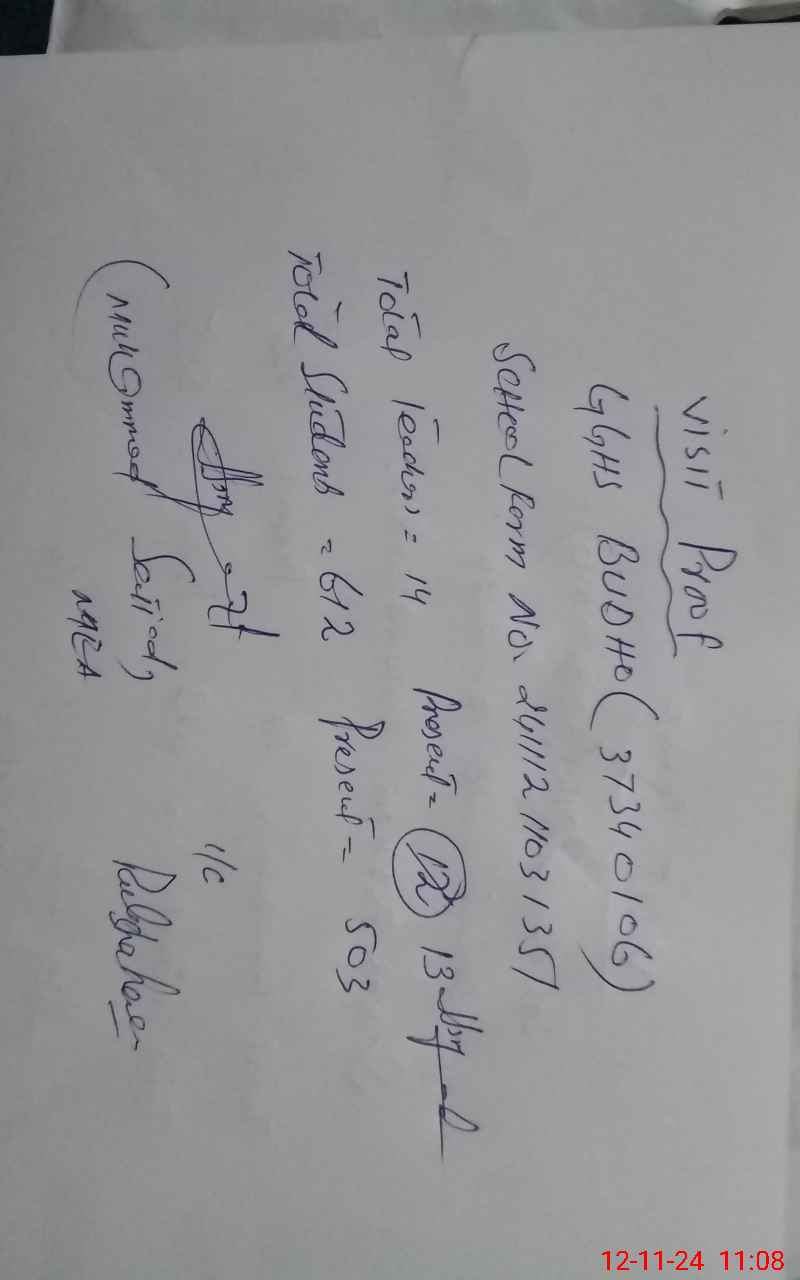 Visit Proof
GGHS BUDHO (37340106)
School Form No. 241112 11031351
Total Teachers = 14 Present = 12 13
Total Students = 612 Present = 503
I/C
(Muhammad Saeed,
MEA
12-11-24 11:08